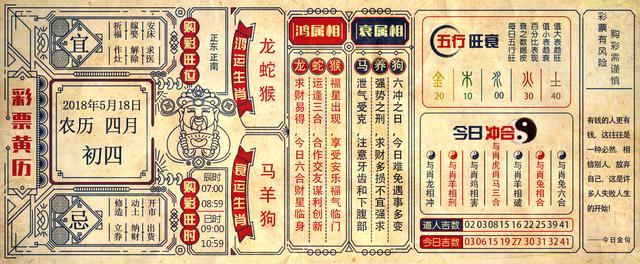 彩票黄历
宜
祈福 嫁娶 安床
作灶 解除 求医
2018年5月18日
农历 四月
初四
忌
修造 动土 开市
立券 纳财 出货
购彩旺位
正东 正南
购彩旺时
辰时
07:00
08:59
巳时
09:00
10:59
鸿运生肖
龙蛇猴
衰运生肖
马羊狗
鸿属相
龙 求财易得 今日六合财星临身
蛇 运逢三合 合作交友谋利创新
猴 福星出现 享受安乐福气临门
衰属相
马 泄气受克 注意牙齿和下腹部
养 强势之刑 求财多损不宜强求
狗 六冲之日 今日难免遇事多变
五行旺衰
值大表趋旺
值小表趋衰
百分比表现
衰之数据按
每日五行旺
金 木 水 火 土
20 10 00 30 40
今日冲合
与肖龙相冲
与肖羊相刑
与肖鸡相害
与肖虎肖马三合
与肖羊相破
与肖兔相合
与肖兔六合
道人吉数 02 03 08 15 16 22 25 39 41
今日吉数 03 06 15 19 27 30 31 32 41
购彩需谨慎
彩票有风险
有钱的人更有
钱，这往往是
一种必然。相
信别人，放弃
自己，这是许
多人失败人生
的开始！
——今日金句